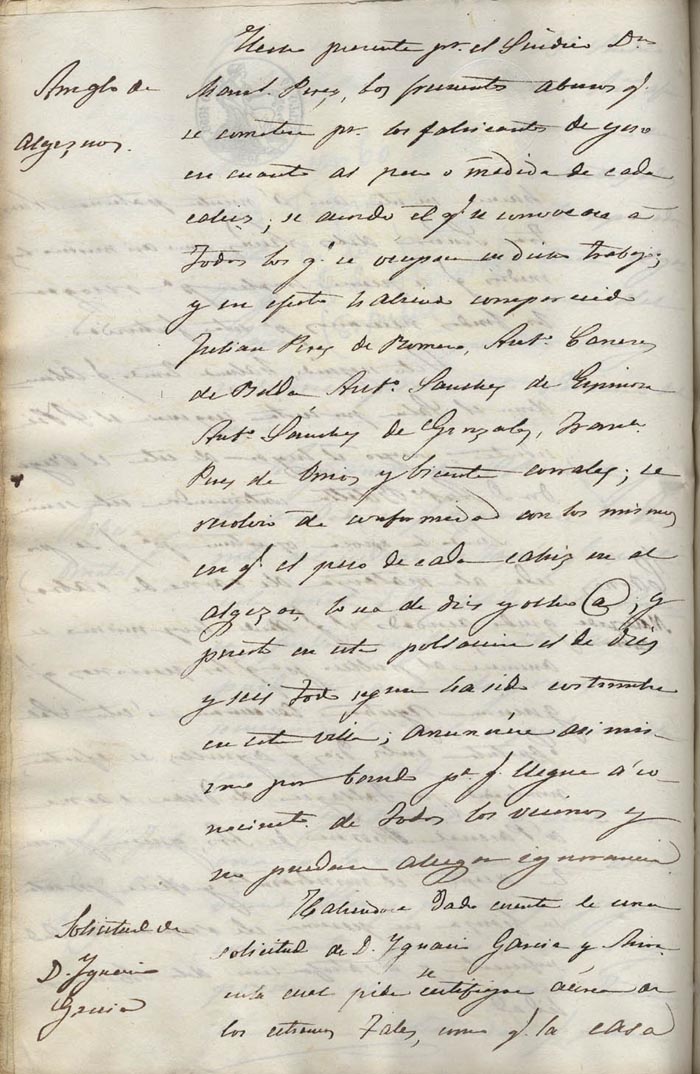 Arreglo de
algeznos.
Hecho presente pr. el Síndico Dn
Manl. Perez, los frecuentes abusos q.
se cometen pr. los fabricantes de yeso
en cuanto al peso o medida de cada
cahiz; se acordó el q. se convocara a
todos los q. se ocupan en dicho trabajo;
y en efecto habiendo comparecido
Julian Perez de Romero, Anto.
de Belda Anto. Sanchez de Espinosa
Anto. Sánchez de Gonzalez, Franco.
Perez de y Vicente Corrales; se
resolvió de conformidad con los mismos
en q. el peso de cada cahiz en el
algezar, lo sea de diez y ocho @, y
puesto en esta poblacion el de diez
y seis todo segun ha sido costumbre
en esta villa; anunciese asi mis-
mo por bando pa. q. llegue á co-
nocimto. de todos los vecinos y
no puedan alegar ignorancia
Solicitud de
D. Ygnacio
Garcia
Habiendose dado cuenta de una
solicitud de D. Ygnacio Garcia y
en la cual pide se certifique acerca de
los estremos tales, como q. la casa